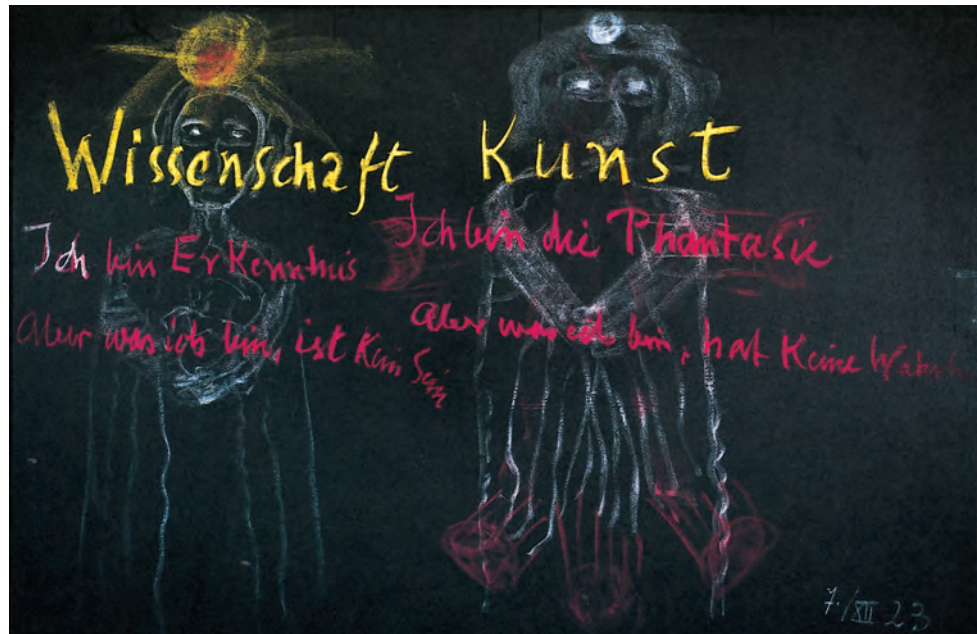 Wissenschaft Kunst
Ich bin Erkenntnis
Aber was ich bin, ist Kein Sein
Ich bin die Phantasie
Aber was ich bin, hat Keine
7./XII 23